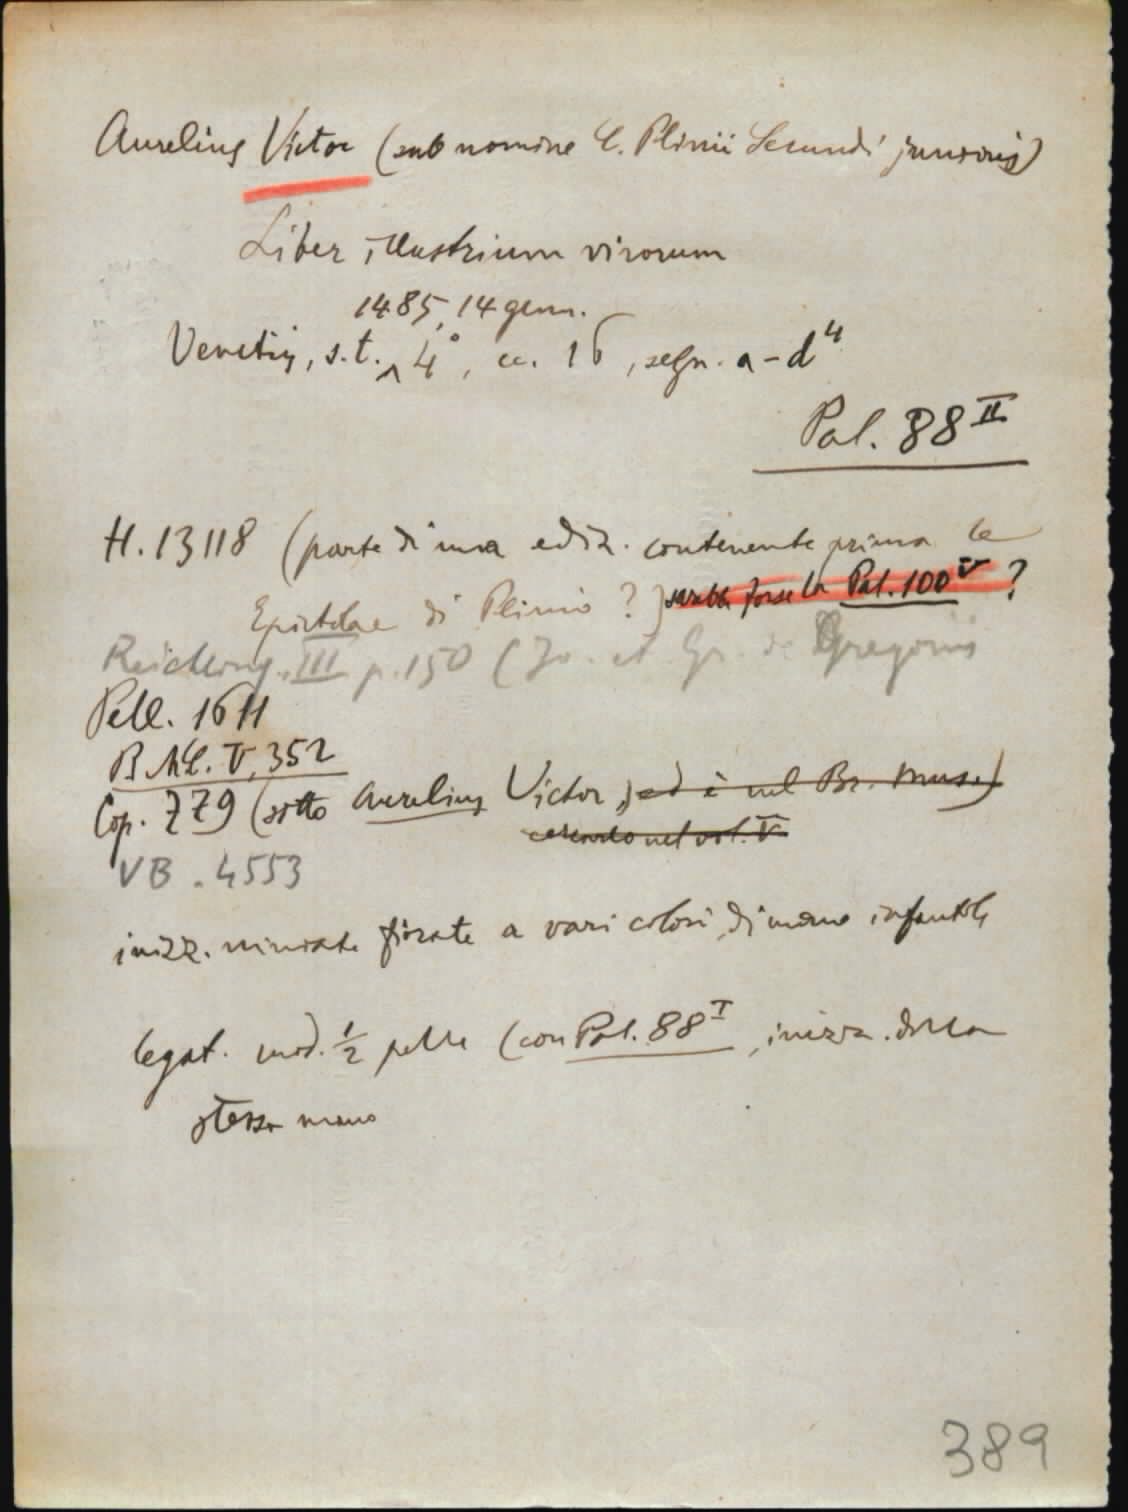 Aurelius Victor (sub nomine C. Plinii Secundi junioris)
Liber illustrium virorum
1485, 14 genn.
Venetiis, s.t. 4°, cc. 16, segn. a-d⁴
Pal. 88 II
H. 13118 (parte di una ediz. contenente prima le
Epistolae di Plinio?) sarebbe forse la Pal. 100 V ?
Reichling. III p. 150 (Jo. et Gr. de Gregoriis
Pell. 1611
B M C. V, 352
Cop. 779 (sotto Aurelius Victor, ed è nel Br. Mus.)
nel vol. V
VB. 4553
inizz. miniate fiorate a vari colori, di mano infantile
legat. mod. ½ pelle (con Pal. 88 I, inizz. della
stessa mano
389